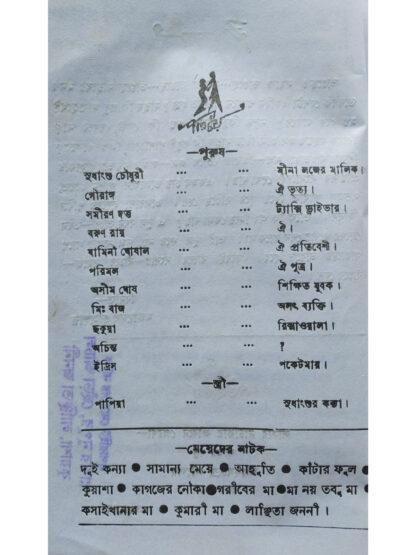 পরিচয়
—পুরুষ—
সুধাংশু চৌধুরী ... ... মীনা লজের মালিক।
গৌরাঙ্গ ... ... ঐ ভৃত্য।
সমীরণ দত্ত ... ... ট্যাক্সি ড্রাইভার।
বরুণ রায় ... ... ঐ।
যামিনী ঘোষাল ... ... ঐ প্রতিবেশী।
পরিমল ... ... ঐ পুত্র।
অসীম ঘোষ ... ... শিক্ষিত যুবক।
মিঃ বাজ ... ... অসৎ ব্যক্তি।
ছকুয়া ... ... রিক্সাওয়ালা।
অচিন্ত ... ... ?
ইদ্রিস ... ... পকেটমার।
—স্ত্রী—
পাপিয়া ... ... সুধাংশুর কন্যা।
—মেয়েদের নাটক—
দুই কন্যা ● সামান্য মেয়ে ● আহুতি ● কাঁটার ফুল ●
কুয়াশা ● কাগজের নৌকা ● গরীবের মা ● মা নয় তবু মা ●
কসাইখানার মা ● কুমারী মা ● লাঞ্ছিতা জননী।